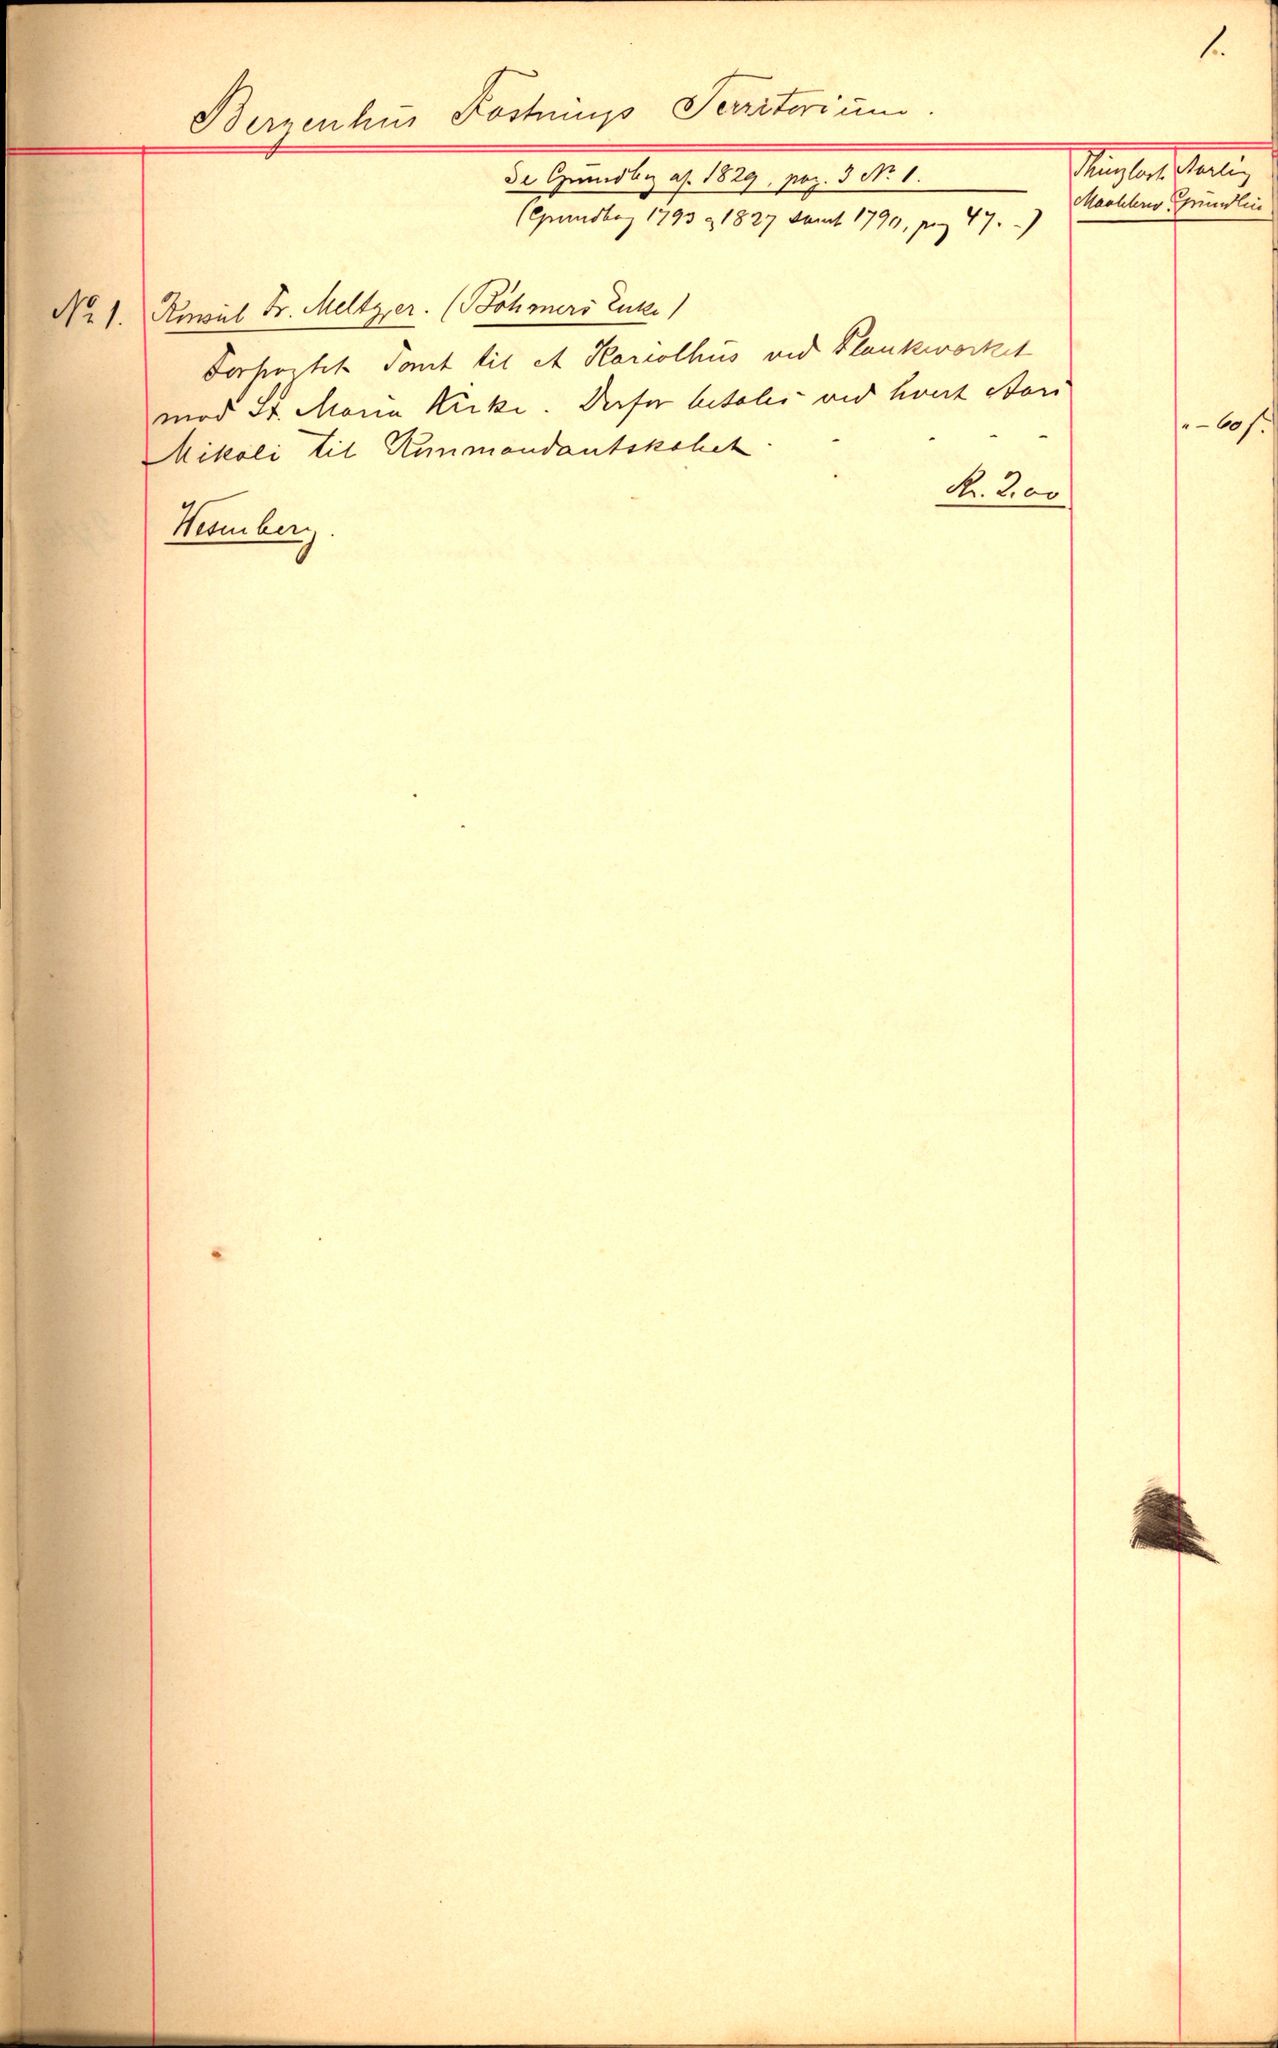 1.
Bergenhus Fæstnings Territorium.
Se Grundbog af 1829, pag. 3 No. 1.
(Grundbog 1793 & 1827 samt 1790, pag 47. -)
Thinglæst Aarlig
Grundleie
No 1. Konsul Fr. Meltzer. (Böhmers Enke)
Forpagtet Tomt til et Kariolhus ved Plankeværket
mod St. Maria Kirke. Derfor betales ved hvert Aars
Mikæli til Kommandantskabet
" - 60 s.
Kr. 2.00
Wesenberg.